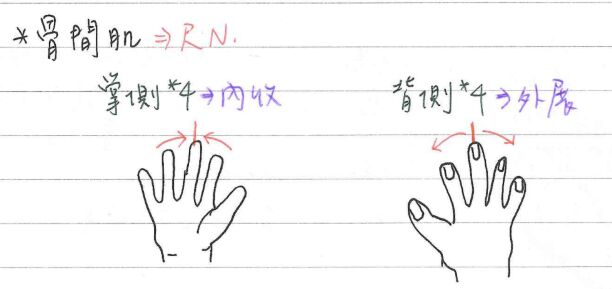 *骨間肌 ⇒ R N.
掌側*4→內收 背側*4→外展